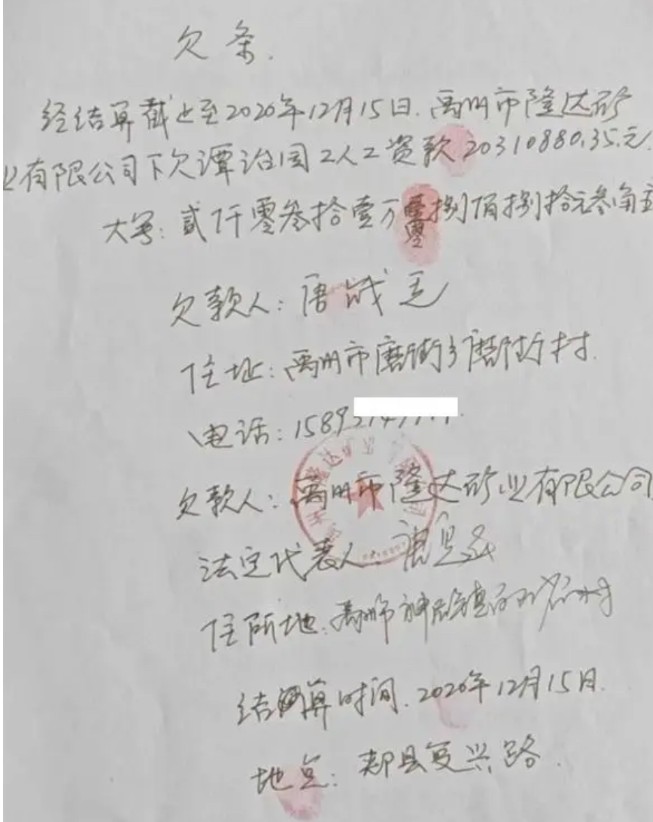 欠条.
经结算截止至2020年12月15日.禹州市隆达矿
业有限公司下欠谭治国工人工资款20310880.35.元.
大写:贰仟零叁拾壹万零捌佰捌拾元叁角五
欠款人:唐战
住址:禹州市磨街乡磨街村.
电话:1589
欠款人:禹州市隆达矿业有限公司
法定代表人.
住所地.禹州市神垕镇
结算时间.2020年12月15日.
地点:郏县复兴路.